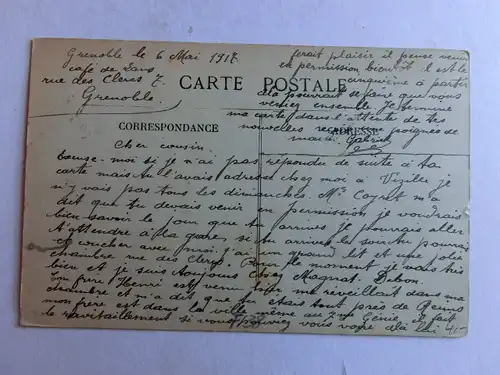 Grenoble le 6 Mai 1917.
café de Lans
rue des Clercs 7.
Grenoble.
CARTE POSTALE
CORRESPONDANCE
ADRESSE
Cher cousin.
excuse-moi si je n'ai pas répondu de suite à ta
carte mais tu l'avais adressée chez moi à Vizille je
n'y vais pas tous les dimanches. Mr Coynet m'a
dit que tu devais venir en permission je voudrais
bien savoir le jour que tu arrives je pourrais aller
t'attendre à la gare, si tu arrives le soir tu pourrais
coucher avec moi j'ai un grand lit et une jolie
chambre rue des Clercs. Pour le moment je vais très
bien et je suis toujours chez Magnat. Debon
ton frère Henri est venu hier me réveiller dans ma
chambre et m'a dit que tu étais tout près de Reims
mon frère est dans la ville même au 2me Génie, il fait
le ravitaillement si vous pouviez vous voir ça lui
ferait plaisir il pense venir
en permission bientôt il est le
cinquième à partir
ça pourrait se faire que vous
veniez ensemble. Je termine
ma carte dans l'attente de tes
nouvelles reçois une poignée de
main. Gabriel